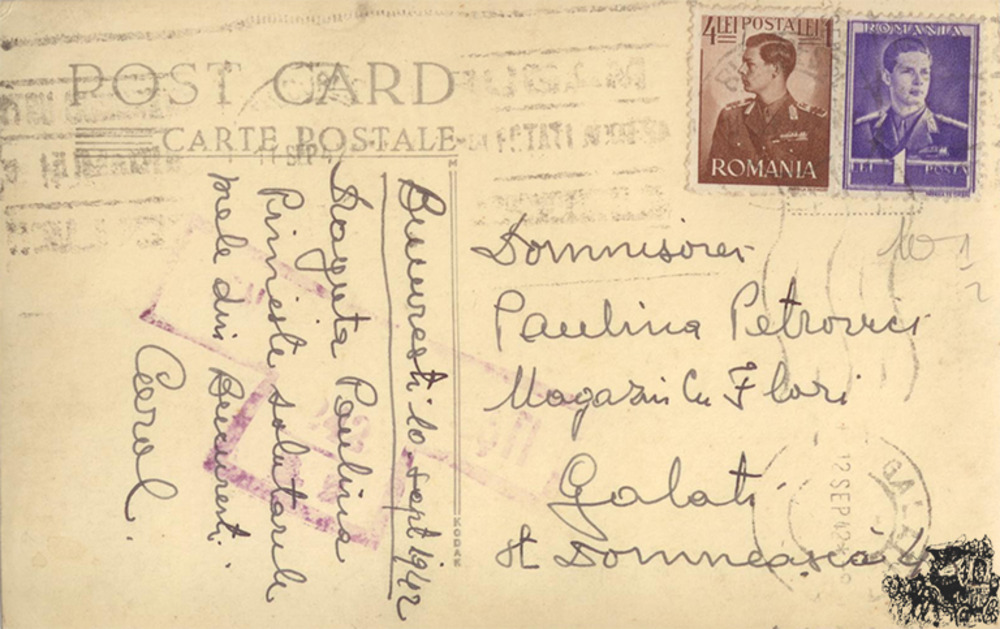 POST CARD
CARTE POSTALE
4 LEI POSTA LEI 4
ROMANIA
ROMANIA
LEI 1 POSTA
11 SEP
Bucuresti 10 sept 1942
Draguta Paulina
Primeste salutarile
mele din Bucuresti.
Carol.
KODAK
Domnisorei
Paulina Petrovici
Magazin Cu Flori
Galati
st Domnească
GALATI
12 SEP 42
10 1
2